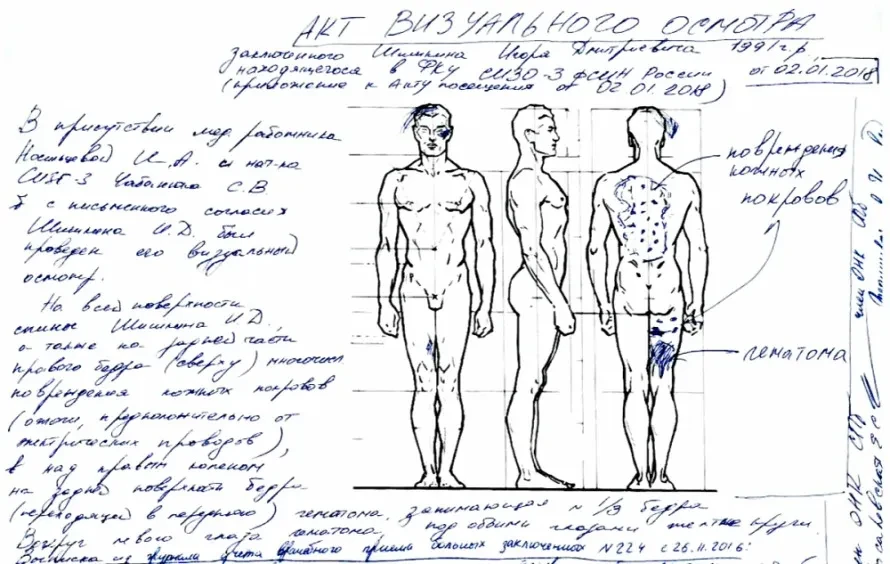 АКТ ВИЗУАЛЬНОГО ОСМОТРА
заключенного Шишкина Игоря Дмитриевича 1991 г.р,
находящегося в ФКУ СИЗО-3 ФСИН России
от 02.01.2018
(приложение к Акту посещения от 02.01.2018)
В присутствии мед работника
И. А. и нач-ка
СИЗО-3 С. В
с письменного согласия
Шишкина И.Д. был
проведен его визуальный
осмотр.
На всей поверхности
спины Шишкина И.Д,
а также на задней части
правого бедра (сверху) многочисл
повреждения кожных покровов
(ожоги, предположительно от
электрических проводов),
над правым коленом
на задней поверхности бедра
(переходящей в переднюю) гематома, занимающая 1/3 бедра
Вокруг левого глаза гематома, под обоими глазами желтые круги
Выписка из журнала учета врачебного приема больных заключенных N224 с 26.11.2016:
повреждения
кожных
покровов
гематома